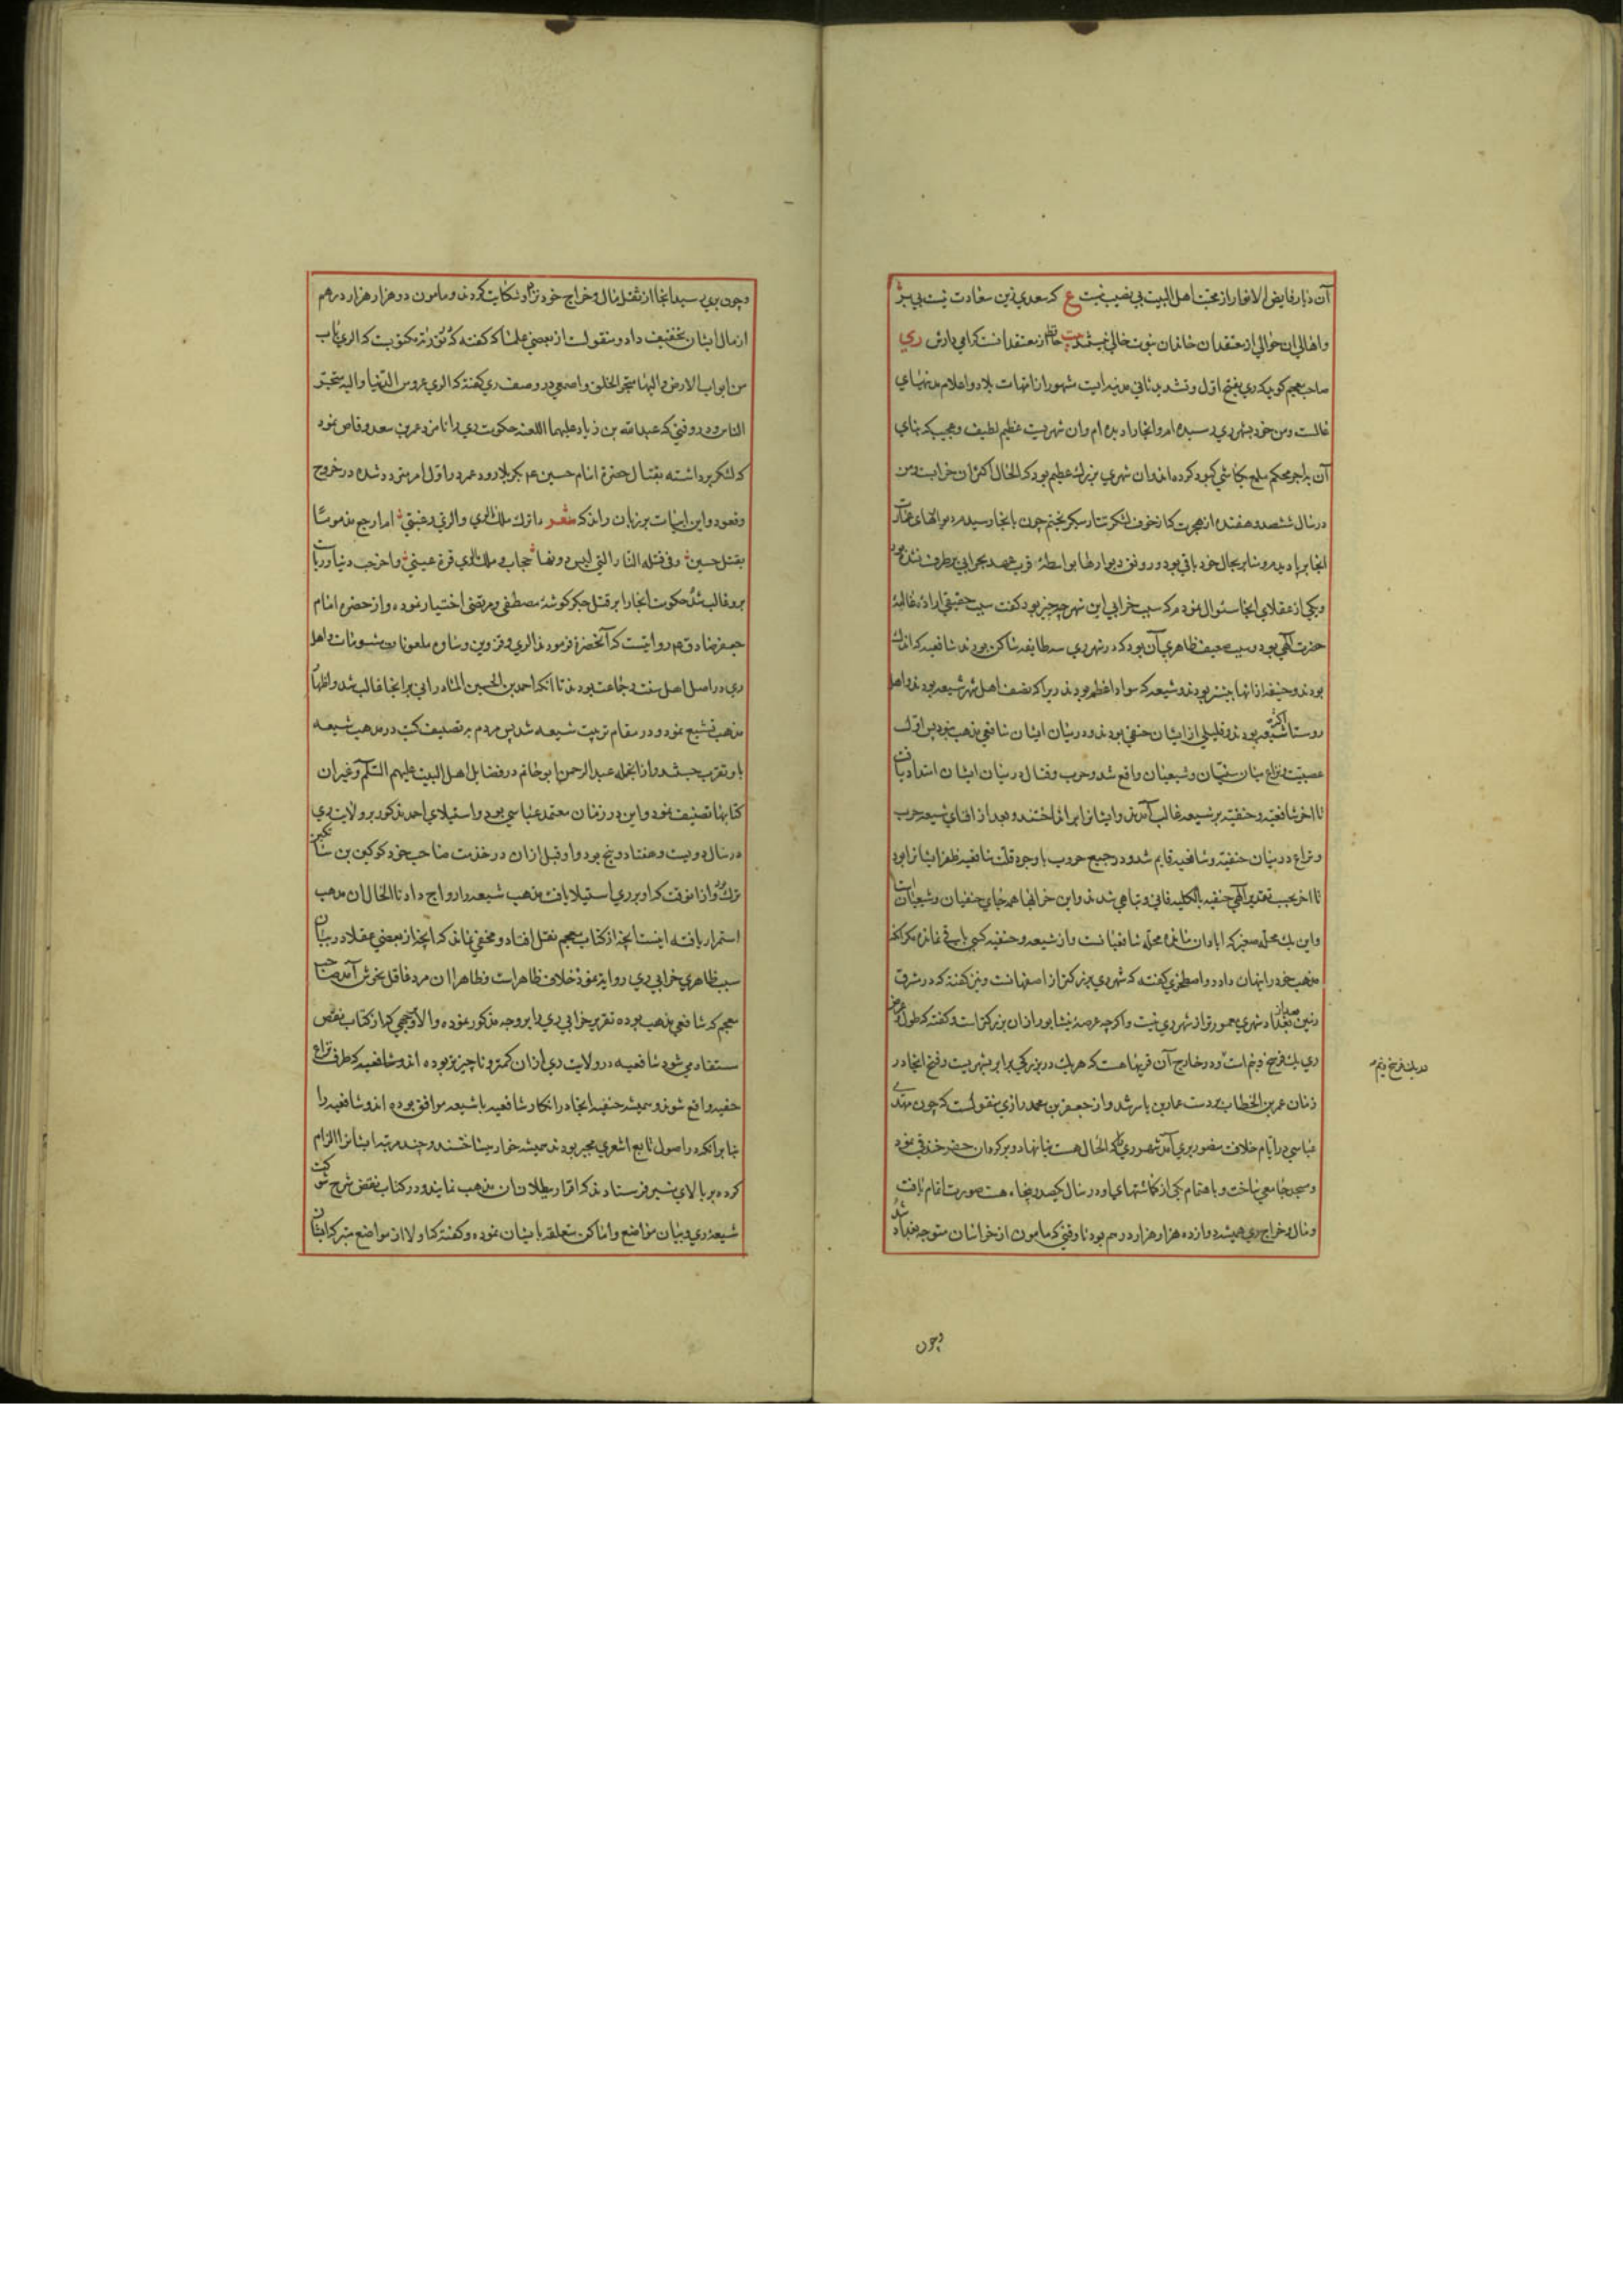 آن دیار فایض الانوار از محبت اهل البیت بی نصیب نیست ع که سعدی زین سعادت نیست بی بهر
واهالی ان حوالی از معتقدان خاندان نبوت خالی نیستند از معتقدانست کرامی دارش ری
صاحب معجم کوید که ری بفتح اول و تشدید ثانی مدینه ایست مشهور از امهات بلاد و اعلام مدنهای
غالست ومن خود بشهر ری رسیده ام وانجا را دیده ام وان شهریست عظیم لطیف و عجیب که بنای
آن باجر محکم ملمع بکاشی کبود کرده اند وان شهری بزرك عظیم بود که الحال اکثر ان خرابست ومن
در سال ششصد و هفده از هجرت که از خوف لشکر تتار میکریختم چون بانجا رسیدم دیوارهای عمارت
انجا برپا دیدم و منابر بحال خود باقی بود و رونق دیوارها بواسطه قرب عهد بخرابی برطرف نشده بود
ویکی از عقلای انجا سئوال نمودم که سبب خرابی این شهر چه چیز بود کفت سبب حقیقی اراده غالبه
حضرت الهی بود و سبب ضعیف ظاهری آن بود که در شهر ری سه طایفه ساکن بودند شافعیه که اندك
بودند و حنیفه از انها بیشتر بودند و شیعه که سواد اعظم بودند زیرا که نصف اهل شهر شیعه بودند و اهل
روستا اکثر شیعه بودند و قلیلی از ایشان حنفی بودند و در میان ایشان شافعی مذهب نبود پس اول
عصبیت و نزاع میان سنیان و شیعیان واقع شد و حرب و قتال در میان ایشان امتداد یافت
تا اخر شافعیه و حنفیه بر شیعه غالب آمدند و ایشانرا برانداختند و بعد از افنای شیعه حرب
و نزاع در میان حنفیه و شافعیه قایم شد و در جمیع حروب با وجود قلت شافعیه ظفر ایشانرا بود
تا اخر بحسب تقدیر الهی حنفیه بالکلیه فانی و تباهی شدند و این خرابها همه جای حنفیان و شیعیان است
واین یك محله صغیر که ابادان مانده محله شافعیانست و از شیعه و حنفیه کسی باقی نمانده مکر انکه
مذهب خود را پنهان دارد و اصطخری کفته که شهر ری بزرکتر از اصفهانست ونیز کفته که در مشرق
زمین بعد از بغداد شهری معمورتر از شهر ری نیست و اکرچه عرصه نیشابور ازان بزرکتر است و کفته که طول و عرض
ری یك فرسخ و نیم است و در خارج آن قریها هست که هریك در بزرکی برابر شهریست و فتح انجا در
زمان عمر بن الخطاب بر دست عمار بن یاسر شد و از جعفر بن محمد رازی منقولست که چون مهدی
عباسی در ایام خلافت منصور بری آمد شهر ری که الحال هست بنا نهاد و بر کرد ان حفر خندقی نمود
و مسجد جامعی ساخت و باهتمام یکی از کماشتهای او در سال یکصد و پنجاه و هشت صورت اتمام یافت
و مال و خراج ری همیشه دوازده هزار هزار درم بود تا وقتی که مامون از خراسان متوجه بغداد شد
یك فرسخ و نیم
وچون
وچون بری رسید انجا از ثقل مال و خراج خود نزد او شکایت کردند و مامون دو هزار هزار درهم
از مال ایشان تخفیف داد و منقولست از بعضی علما که کفته که در تورته مکتوبست که الری باب
من ابواب الارض والیها متجر الخلق واصمعی در وصف ری کفته که الری عروس الدنیا والیه متجر
الناس و در وقتی که عبیدالله بن زیاد علیهما اللعنه حکومت ری را نامزد عمر بن سعد وقاص نمود
که لشکر برداشته بقتال حضرة امام حسین ع بکربلا رود عمر در اول امر متردد شده در خروج
وقعود واین ابیات بر زبان راند که شعر ءاترك ملك الری والری رغبتی ام ارجع مذموما
بقتل حسین وفی قتله النار التی لیس دونها حجاب وملك الری قرة عینی واخر حب دنیا و ریاست
برو غالب شد حکومت انجا را بر قتل جکر کوشه مصطفی و مرتضی اختیار نمود و از حضره امام
جعفر صادق ع روایتست که آنحضرة فرمودند الری و قزوین و ساوه ملعونات مشومات و اهل
ری در اصل اهل سنت و جماعت بودند تا انکه احمد بن الحسین المادرانی بر انجا غالب شد و اظهار
مذهب تشیع نمود و در مقام تربیت شیعه شد پس مردم بتصنیف کتب در مذهب شیعه
باو تقرب جستند و از انجمله عبدالرحمن ابو حاتم در فضایل اهل البیت علیهم السلم و غیر ان
کتابها تصنیف نمود واین در زمان معتمد عباسی بود و استیلای احمد مذکور بر ولایت ری
در سال دویست و هفتاد و پنج بود و او قبل ازان در خدمت صاحب خود کوکین بن ساتکین
ترك بود و از انوقت که او بر ری استیلا یافت مذهب شیعه را رواج داد تا الحال ان مذهب
استمرار یافته اینست انچه از کتاب معجم نقل افتاد و مخفی نماند که انچه از بعضی عقلا در بیان
سبب ظاهری خرابی ری روایة نموده خلاف ظاهر است و ظاهرا ان مرد فاقل بخوش آمد صاحب
معجم که شافعی مذهب بوده تقریر خرابی ری را بر وجه مذکور نموده والا وجهی که از کتاب نقض
مستفاد می شود شافعیه در ولایت ری ازان کمتر و ناچیزتر بوده اند و شافعیه که طرف نزاع
حنفیه واقع شوند و همیشه حنفیه انجا در انکار شافعیه با شیعه موافق بوده اند و شافعیه را
بنا برانکه در اصول تابع اشعری مجبر بودند همیشه خوار میساختند و چند مرتبه ایشانرا الزام
کرده بر بالای منبر فرستادند که اقرار ببطلان ان مذهب نمایند و در کتاب نقض شرح شوکت
شیعه ری و بیان مواضع و اماکن متعلقه بایشان نموده و کفته که اولا از مواضع متبرکه ایشان